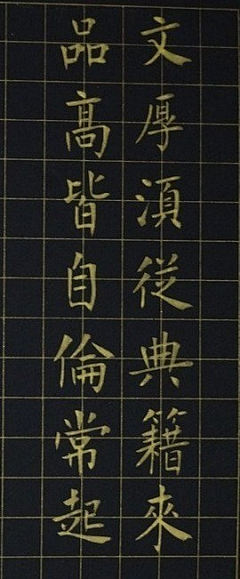 文厚須從典籍來
品高皆自倫常起